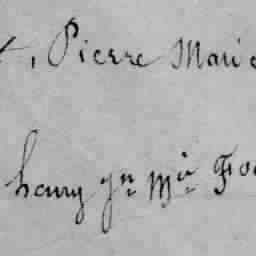 t, Pierre Marie
henry yn Min Fo